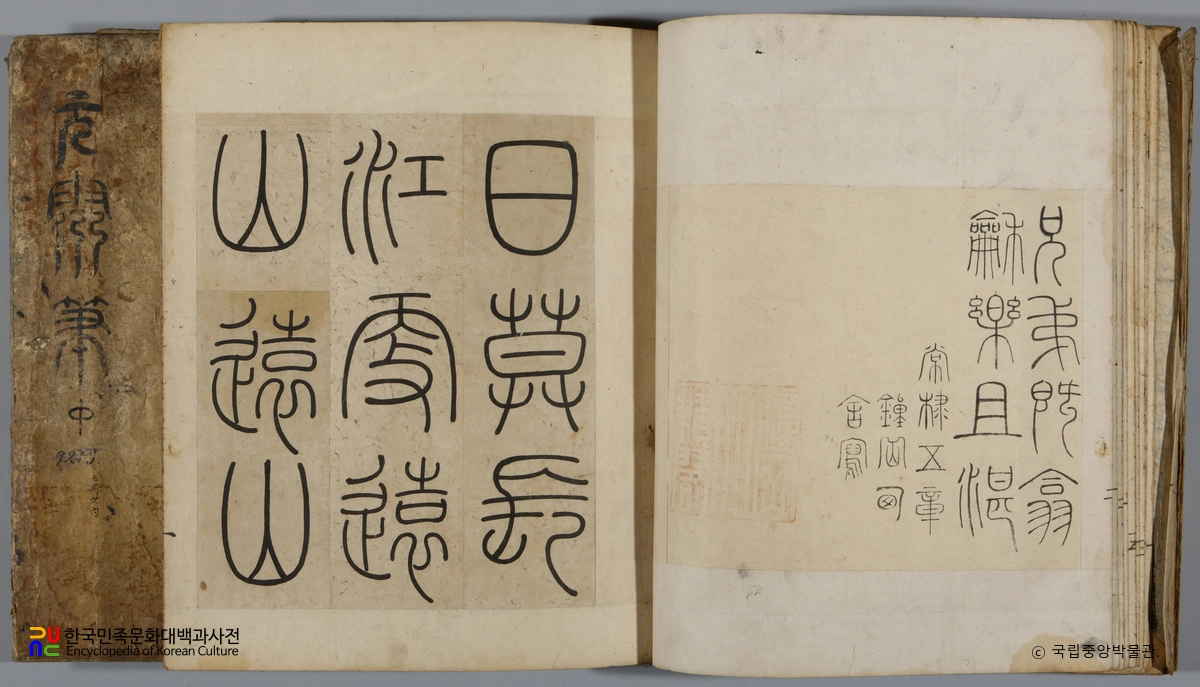 筆 中
日莫長
江 遠
山遠山
兄弟既翕
龢樂且湛
常棣五章
舍寫
한국민족문화대백과사전
Encyclopedia of Korean Culture
© 국립중앙박물관.